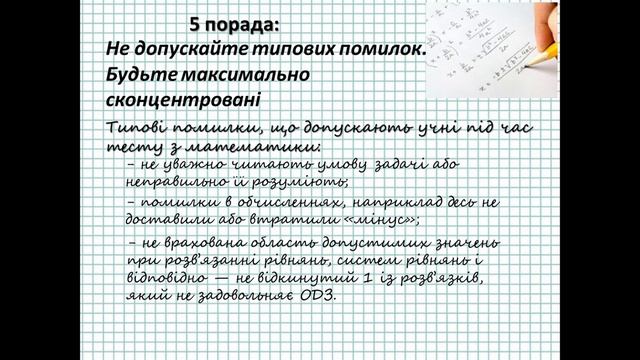 5 порада:
Не допускайте типових помилок.
Будьте максимально
сконцентровані
Типові помилки, що допускають учні під час
тесту з математики:
- не уважно читають умову задачі або
неправильно її розуміють;
- помилки в обчисленнях, наприклад десь не
доставили або втратили «мінус»;
- не врахована область допустимих значень
при розв'язанні рівнянь, систем рівнянь і
відповідно — не відкинутий 1 із розв'язків,
який не задовольняє ОДЗ.